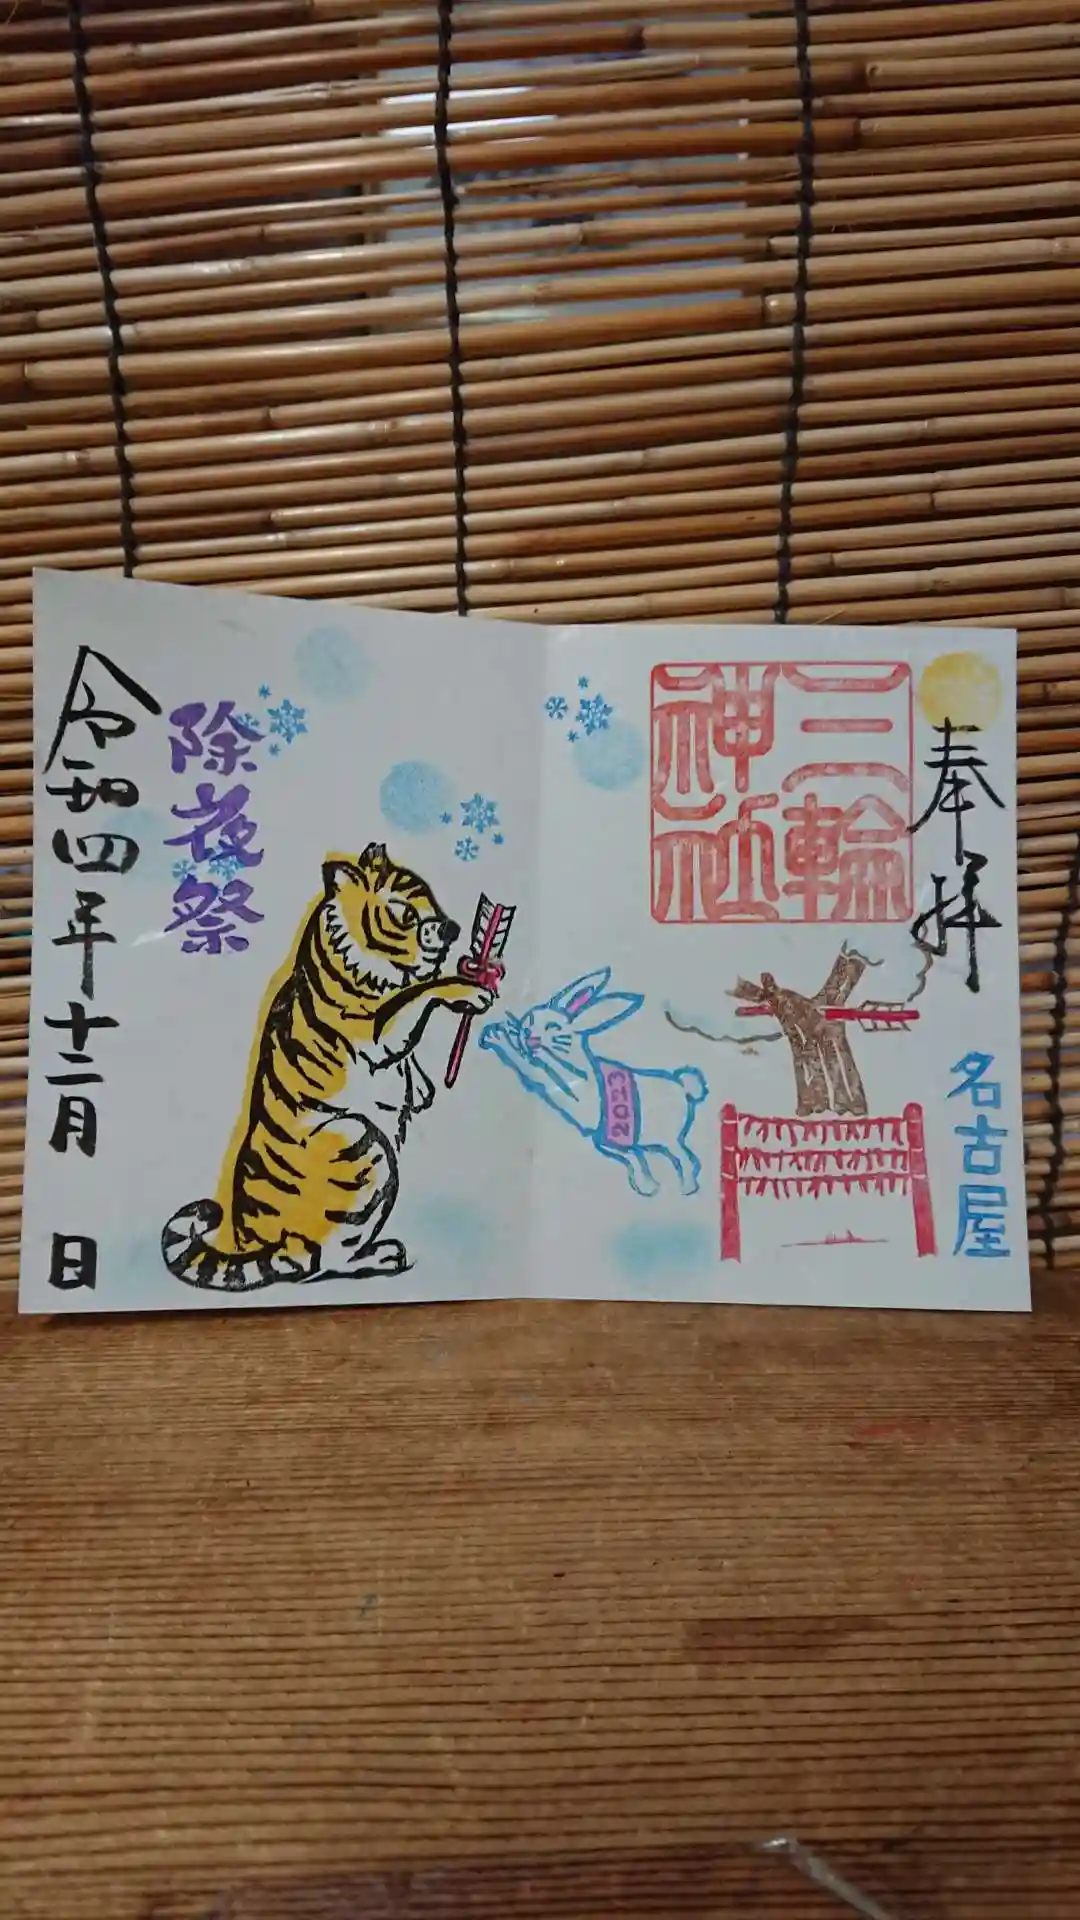 奉拝
名古屋
三輪
神社
2023
除夜祭
令和四年十二月 日